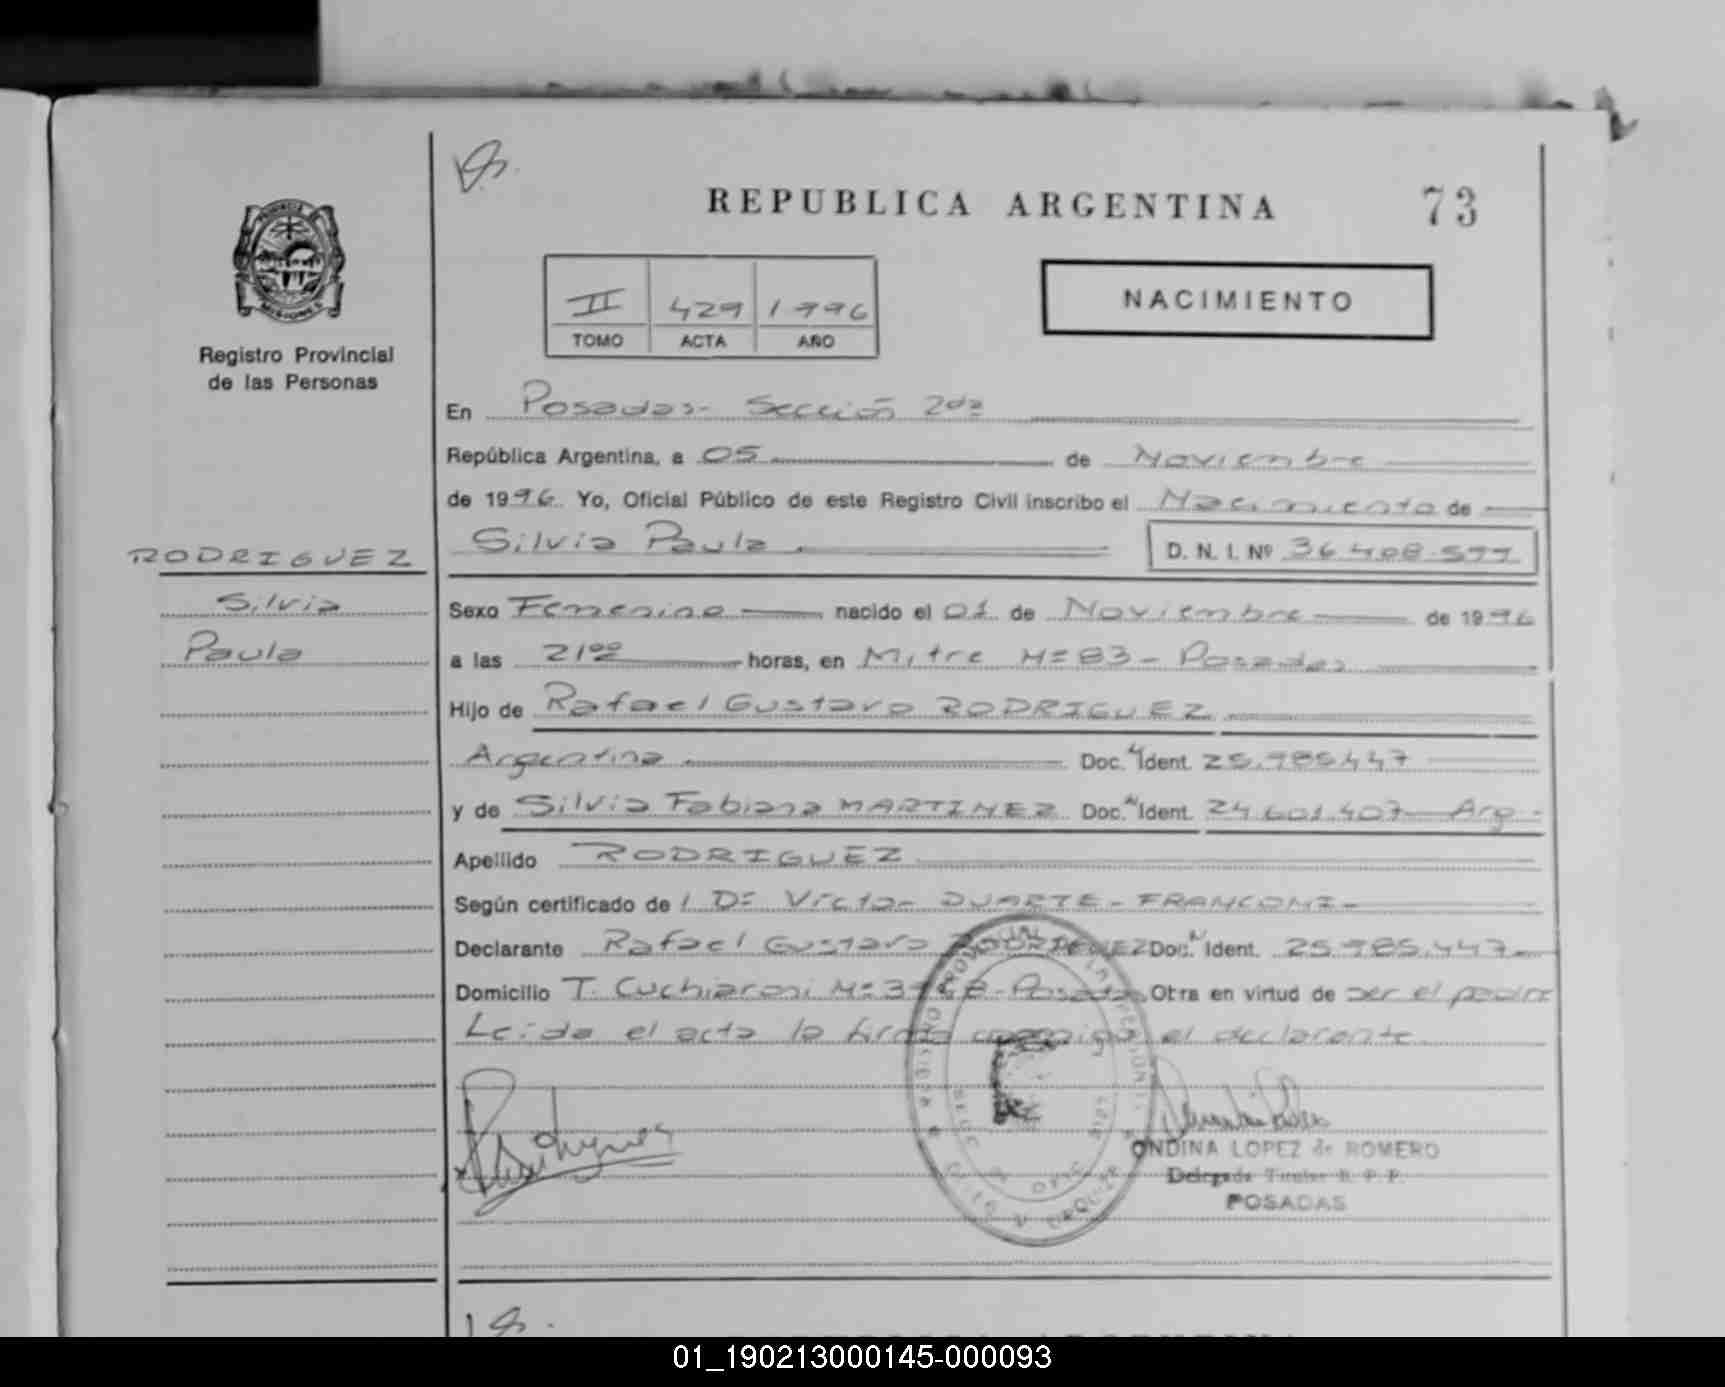 REPUBLICA ARGENTINA
73
PROVINCIA
MISIONES
Registro Provincial
de las Personas
II 429 1996
TOMO ACTA AÑO
NACIMIENTO
En Posadas- Sección 2da
República Argentina, a 05 de Noviembre
de 1996. Yo, Oficial Público de este Registro Civil inscribo el Nacimiento de
RODRIGUEZ
Silvia
Paula
Silvia Paula. D. N. I. Nº 36.408.577
Sexo Femenino nacido el 01 de Noviembre de 1996
a las 21ºº horas, en Mitre Nº 83- Posadas
Hijo de Rafael Gustavo RODRIGUEZ
Argentina Doc. N Ident. 25.985.447
y de Silvia Fabiana MARTINEZ Doc. N Ident. 24.601.407 Arg-
Apellido RODRIGUEZ
Según certificado de / Dr Victor DUARTE- FRANCONI-
Declarante Rafael Gustavo RODRIGUEZ Doc. N Ident. 25.985.447
Domicilio T. Cuchiaroni Nº Posadas Otra en virtud de ser el padre
Leida el acta la firma conmigo el declarante.
ONDINA LOPEZ de ROMERO
Delegada Titular R. P. P.
POSADAS
01_190213000145-000093